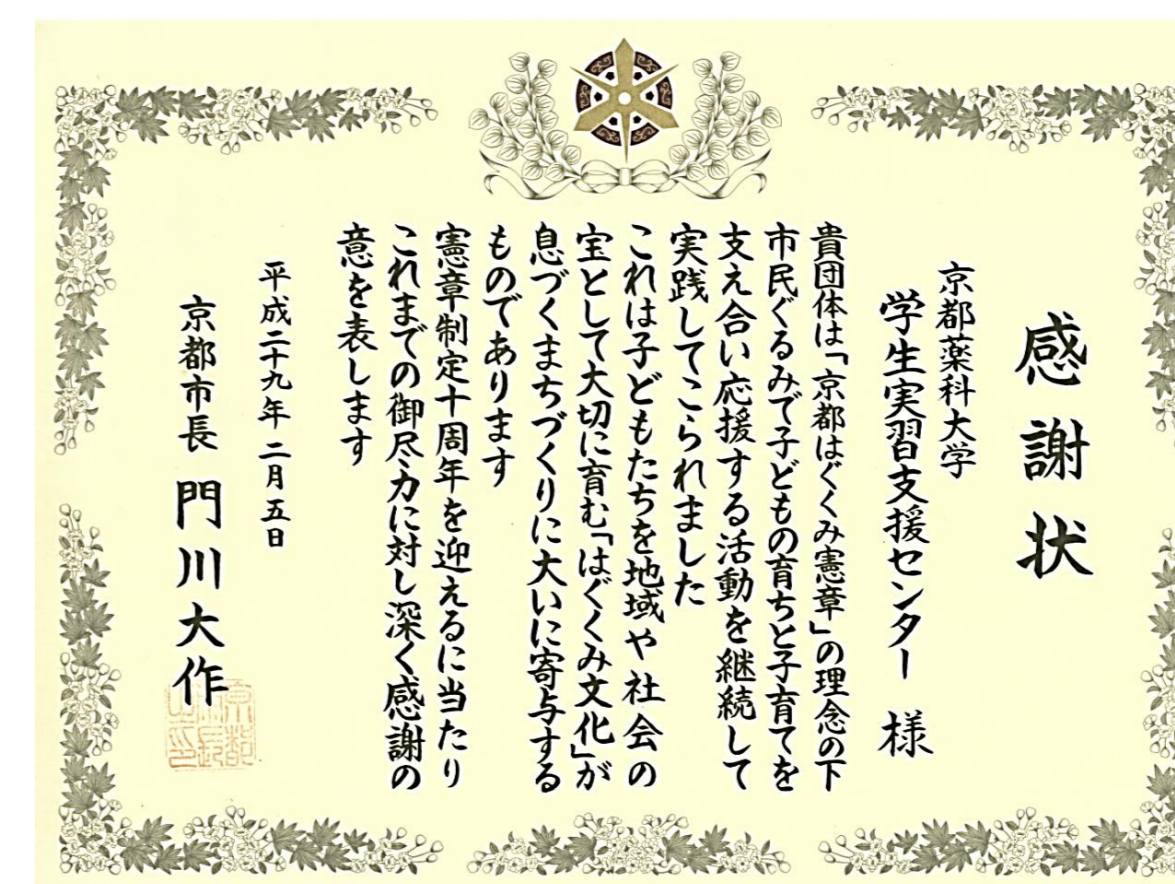 感謝状
京都薬科大学
学生実習支援センター 様
貴団体は「京都はぐくみ憲章」の理念の下
市民ぐるみで子どもの育ちと子育てを
支え合い応援する活動を継続して
実践してこられました
これは子どもたちを地域や社会の
宝として大切に育む「はぐくみ文化」が
息づくまちづくりに大いに寄与する
ものであります
憲章制定十周年を迎えるに当たり
これまでの御尽力に対し深く感謝の
意を表します
平成二十九年二月五日
京都市長 門川大作
京都
市長
之印